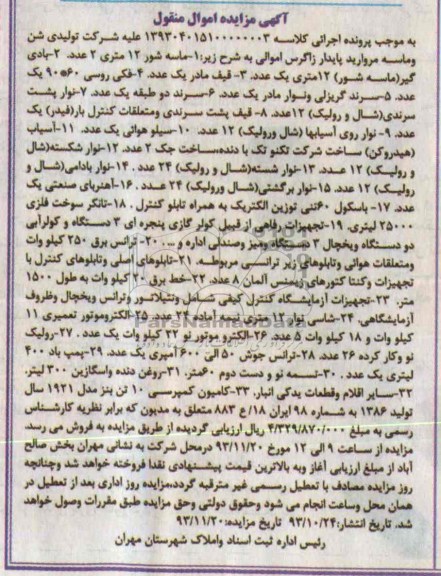 آگهی مزایده اموال منقول
به موجب پرونده اجرائی کلاسه ۱۳۹۳۰۴۰۱۵۱۰۰۰۰۰۰۰۳ علیه شرکت تولیدی شن
وماسه مروارید پایدار زاگرس اموالی به شرح زیر:۱-ماسه شور ۱۲ متری ۲ عدد. ۲-بادی
گیر(ماسه شور) ۱۲متری یک عدد. ۳- قیف مادر یک عدد. ۴-فکی روسی ۶۰*۹۰ یک
عدد. ۵-سرند گریزلی ونوار مادر یک عدد. ۶-سرند دو طبقه یک عدد. ۷-نوار پشت
سرندی(شال و رولیک) ۱۲عدد. ۸- قیف پشت سرندی ومتعلقات کنترل بار(فیدر) یک
عدد. ۹- نوار روی آسیابها (شال ورولیک) ۱۲ عدد. ۱۰-سیلو هوائی یک عدد. ۱۱-آسیاب
(هیدروکن) ساخت شرکت تکنو تک با دنده،ساخت جک ۲ عدد. ۱۲-نوار شکسته(شال
و رولیک) ۱۲ عدد. ۱۳-نوار شسته(شال و رولیک) ۲۴ عدد. ۱۴-نوار بادامی(شال و
رولیک) ۱۲ عدد. ۱۵-نوار برگشتی(شال ورولیک) ۲۴ عدد. ۱۶-آهنربای صنعتی یک
عدد. ۱۷- باسکول ۶۰تنی توزین الکتریک به همراه تابلو کنترل. ۱۸-تانکر سوخت فلزی
۲۵۰۰۰ لیتری. ۱۹-تجهیزات رفاهی از قبیل کولر گازی پنجره ای ۳ دستگاه و کولرآبی
دو دستگاه ویخچال ۳ دستگاه ومیز وصندلی اداره و ... ۲۰- ترانس برق ۲۵۰ کیلو وات
ومتعلقات هوائی وتابلوهای زیر ترانسی مربوطه. ۲۱-تابلوهای اصلی وتابلوهای کنترل با
تجهیزات وکنتا کتورهای زیمنس آلمان ۸ عدد. ۲۲-خط برق ۲۰ کیلو وات به طول ۱۵۰۰
متر. ۲۳-تجهیزات آزمایشگاه کنترل کیفی شامل ونتیلاتور وترانس ویخچال وظروف
آزمایشگاهی. ۲۴-شاسی نوار ۱۲ متری نیمه آماده ۲۴ عدد. ۲۵-الکتروموتور تعمیری ۱۱
کیلو وات و ۱۸ کیلو وات ۵ عدد. ۲۶-الکترو موتور نو ۳۲ کیلو وات یک عدد. ۲۷-رولیک
نو وکار کرده ۲۶ عدد. ۲۸-ترانس جوش ۵۰ الی ۶۰۰ آمپری یک عدد. ۲۹-پمپ باد ۴۰۰
لیتری یک عدد. ۳۰-تسمه نو و دست دوم ۶۰متر. ۳۱-روغن دنده واسگازین ۳۰۰ لیتر.
۳۲-سایر اقلام وقطعات یدکی انبار. ۳۳-کامیون کمپرسی ۱۰ تن بنز مدل ۱۹۲۱ سال
تولید ۱۳۸۶ به شماره ۹۸ ایران ۱۸/ع ۸۸۳ متعلق به مدیون که برابر نظریه کارشناس
رسمی به مبلغ ۴/۳۲۹/۸۷۰/۰۰۰ ریال ارزیابی گردیده از طریق مزایده به فروش می رسد.
مزایده از ساعت ۹ الی ۱۲ مورخ ۹۳/۱۱/۲۰ درمحل شرکت به نشانی مهران بخش صالح
آباد از مبلغ ارزیابی آغاز وبه بالاترین قیمت پیشنهادی نقدا فروخته خواهد شد وچنانچه
روز مزایده مصادف با تعطیل رسمی غیر مترقبه گردد،مزایده روز اداری بعد از تعطیل در
همان محل وساعت انجام می شود وحقوق دولتی وحق مزایده طبق مقررات وصول خواهد
شد. تاریخ انتشار:۹۳/۱۰/۲۴ تاریخ مزایده:۹۳/۱۱/۲۰
رئیس اداره ثبت اسناد واملاک شهرستان مهران
ParsNamadData